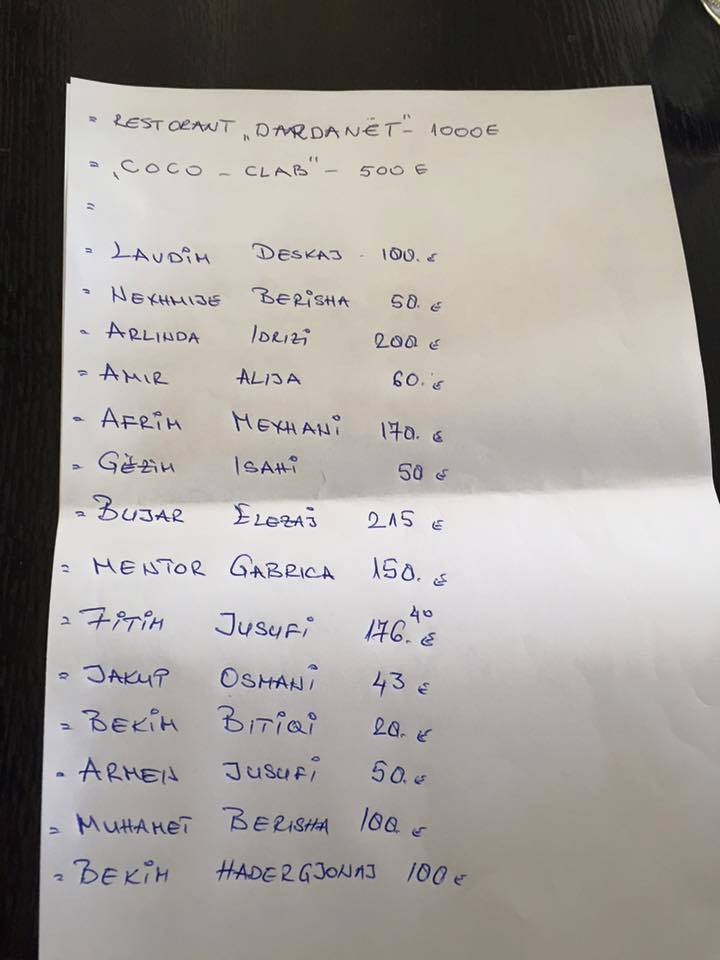 = RESTORANT „DARDANËT“ - 1000 €
= „COCO - CLAB“ - 500 €
=
= LAUDIM DESKAJ - 100. €
= NEXHMIJE BERISHA 50. €
- ARLINDA IDRIZI 200 €
= AMIR ALIJA 60. €
= AFRIM MEXHANI 170. €
= GËZIM ISAHI 50 €
= BUJAR ELEZAJ 215 €
= MENTOR GABRICA 150. €
= FITIM JUSUFI 176.40 €
= JAKUP OSMANI 43 €
= BEKIM BITIQI 20. €
- ARMEN JUSUFI 50. €
= MUHAMET BERISHA 100 €
= BEKIM HADERGJONAJ 100 €